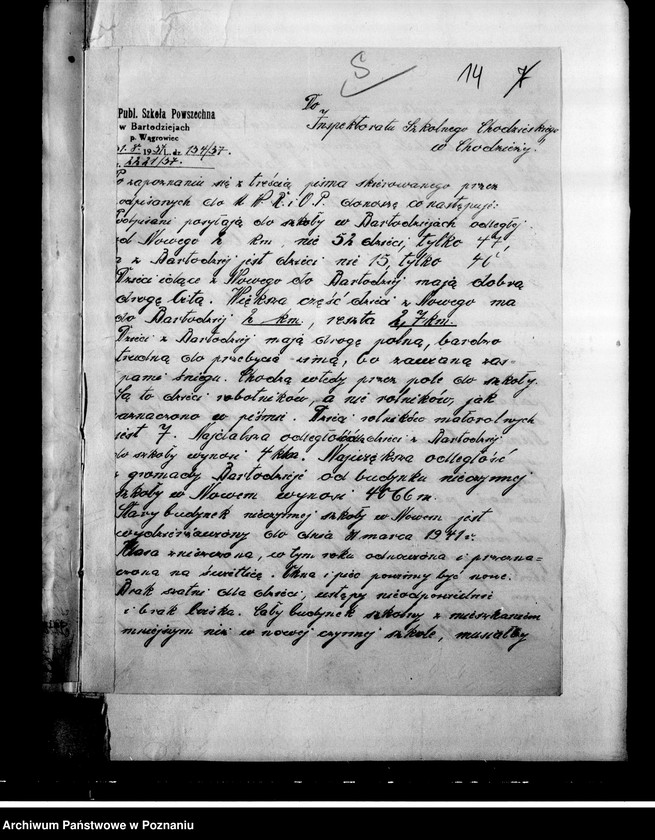 S 14 7
Publ. Szkoła Powszechna
w Bartodziejach
p. Wągrowiec
1937 r. L. dz. 134/37.
2221/37.
Do
Inspektoratu Szkolnego Chodzieskiego
w Chodzieży.
Po zapoznaniu się z treścią pisma skierowanego przez
podpisanych do M. W. R. i O. P. donoszę co następuje:
Podpisani posyłają do szkoły w Bartodziejach odległej
od Nowego 2 km, nie 52 dzieci, tylko 47,
a z Bartodziej jest dzieci nie 15, tylko
Dzieci idące z Nowego do Bartodziej mają dobrą
drogę bitą. Większa część dzieci z Nowego ma
do Bartodziej 2 km., reszta 2,7 km.
Dzieci z Bartodziej mają drogę polną, bardzo
trudną do przebycia zimą, bo zawianą zas-
pami śniegu. Chodzą wtedy przez pole do szkoły.
Są to dzieci robotników, a nie rolników, jak
zaznaczono w piśmie. Dzieci rolników małorolnych
jest 7. Najdalsza odległość dzieci z Bartodziej
do szkoły wynosi 4 km. Największa odległość
z gromady Bartodzieje od budynku nieczynnej
szkoły w Nowem wynosi 4566 m.
Stary budynek nieczynnej szkoły w Nowem jest
wydzierżawiony do dnia 31 marca 1941 r.
Klasa zniszczona, w tym roku odnowiona i przezna=
czona na świetlicę. Okna i piec powinny być nowe.
Brak szatni dla dzieci, ustępy nieodpowiednie
i brak boiska. Cały budynek szkolny z mieszkaniem
mniejszym niż w nowej czynnej szkole, musiałby